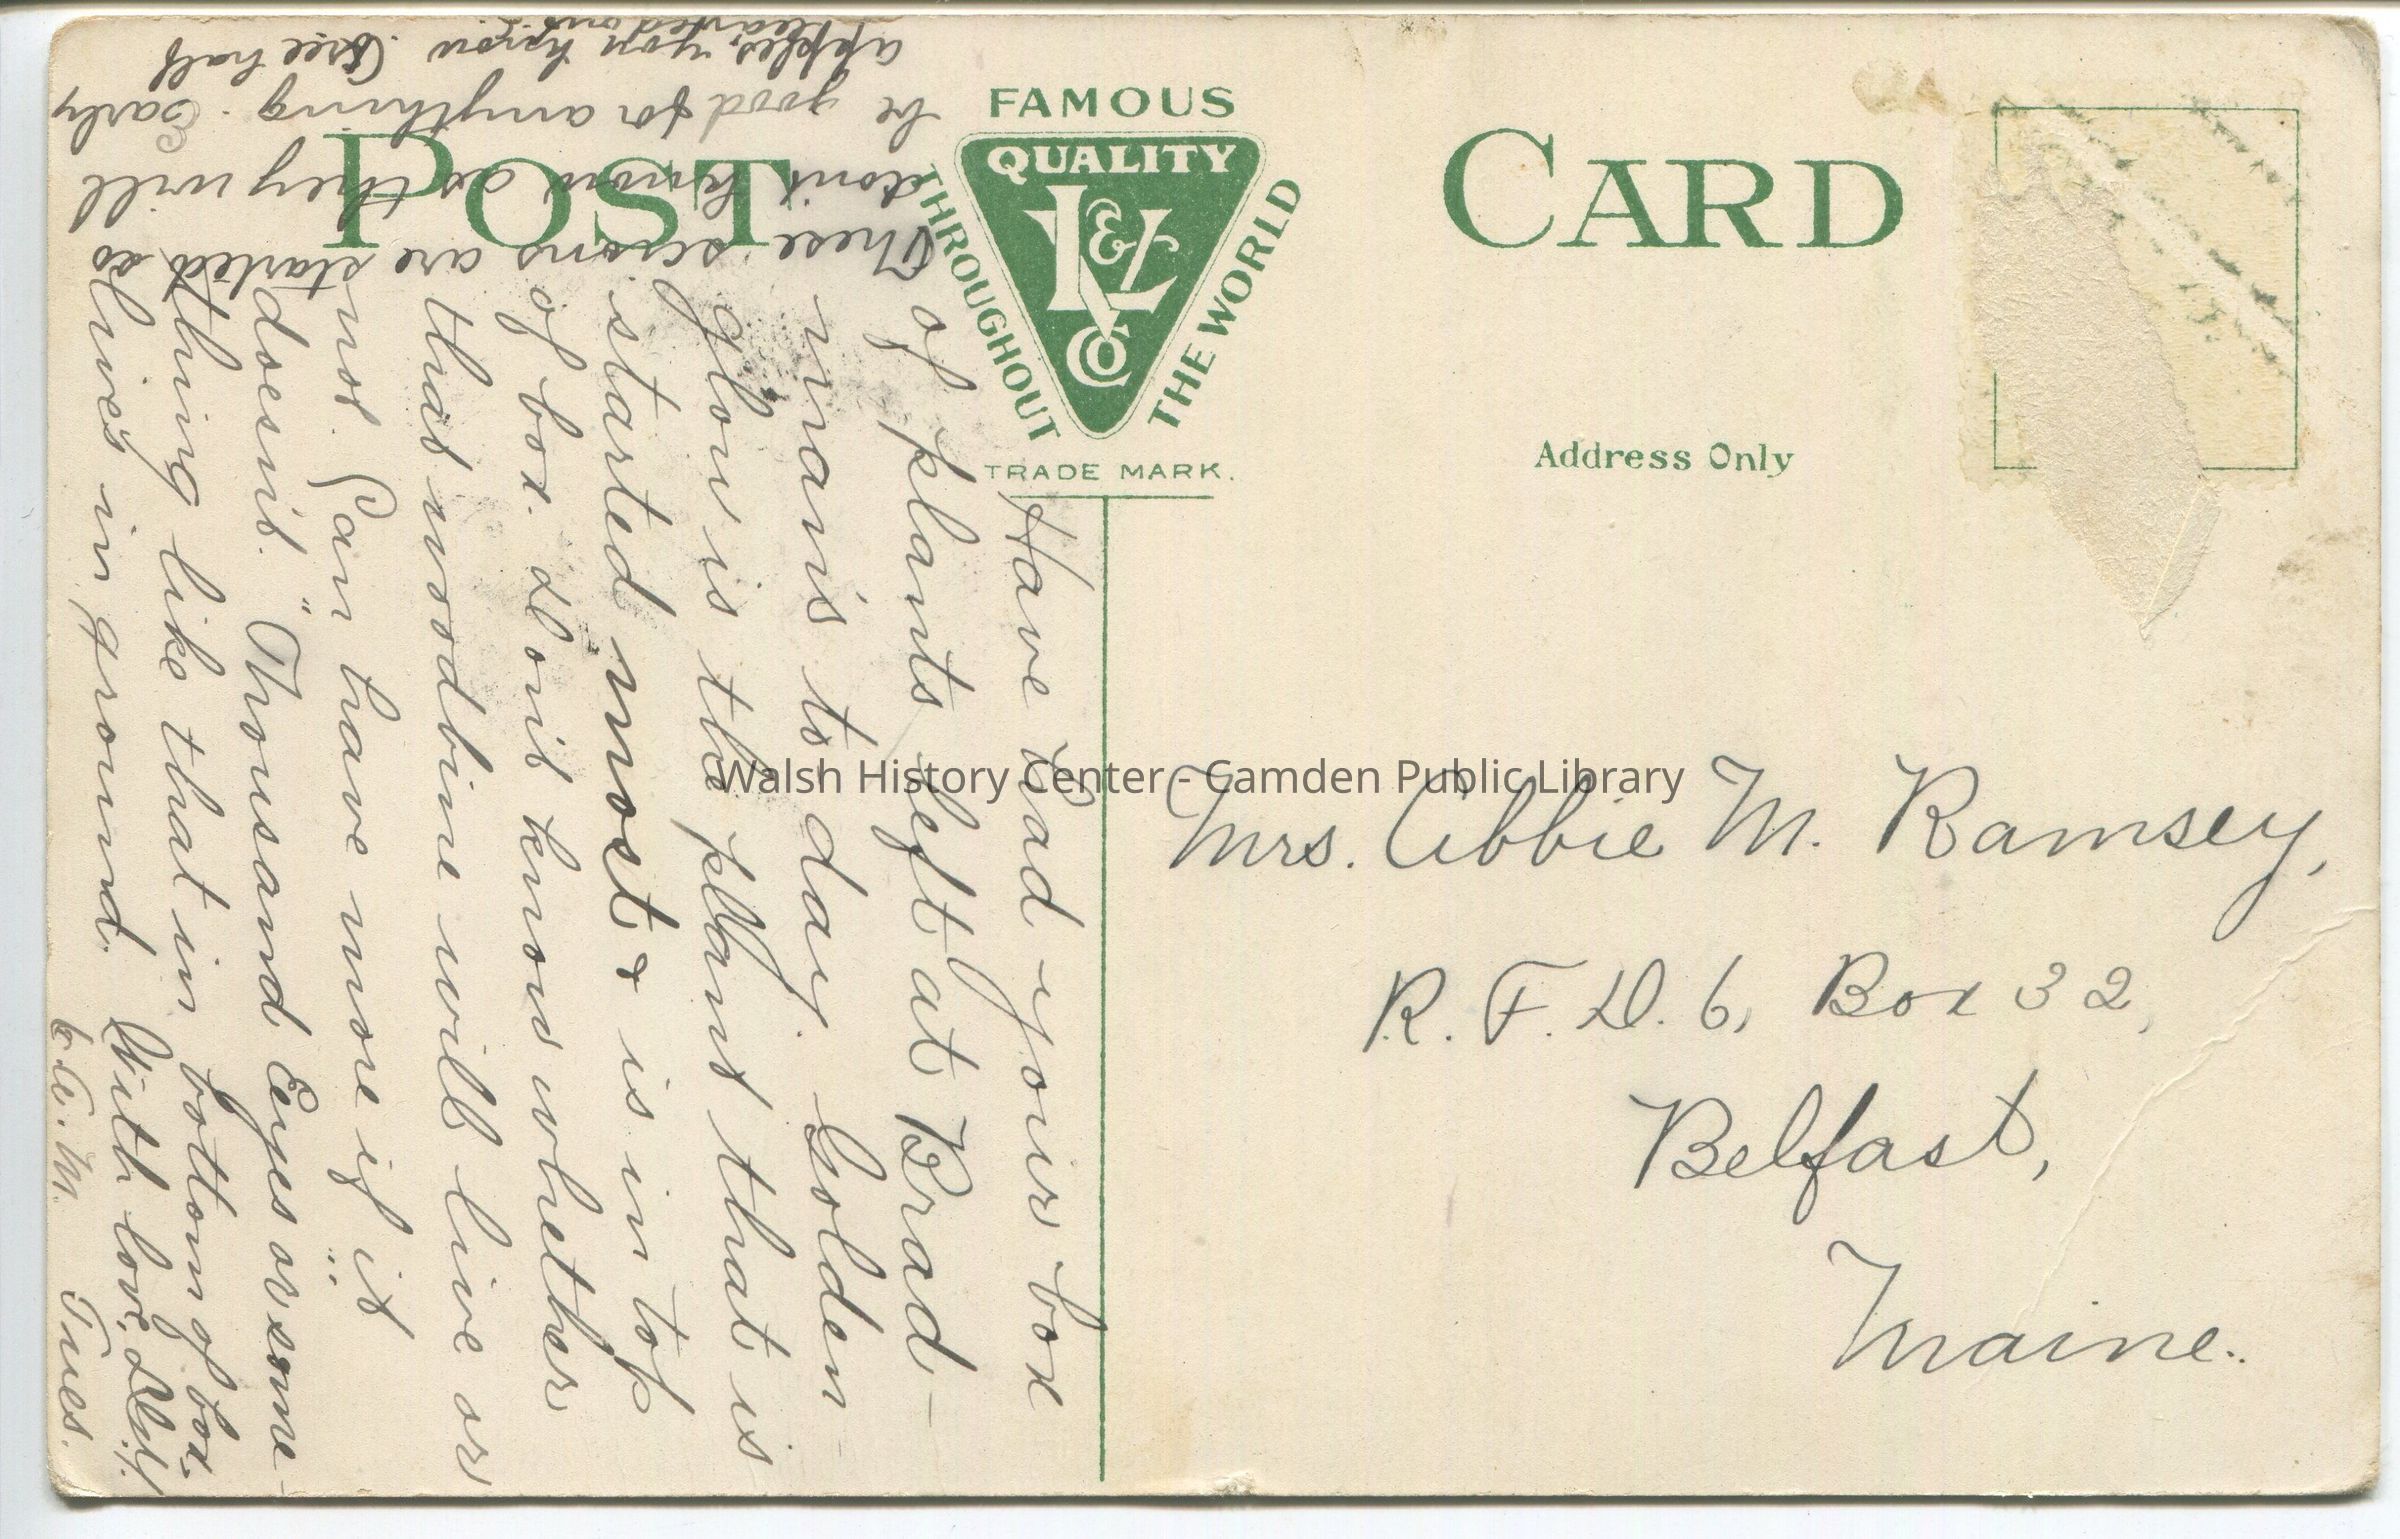 POST CARD
FAMOUS
QUALITY
K & L
Co
THROUGHOUT
THE WORLD
TRADE MARK.
Address Only
Have had your box
of plants left at Brad-
mans to day. Golden-
glow is the plant that is
started most & is in top
of box. Don't know whether
that woodbine will live or
not. Can have more if it
doesn't. "Thousand Eyes or some-
thing like that in bottom of box.
lives in ground. With love,
E. A. M. Tues.
These scions are started so
don't know as they will
be good for anything. Early
apples you know. See half
hearted ones.
Mrs. Abbie M. Ramsey,
R. F. D. 6, Box 32,
Belfast,
Maine.
Walsh History Center - Camden Public Library